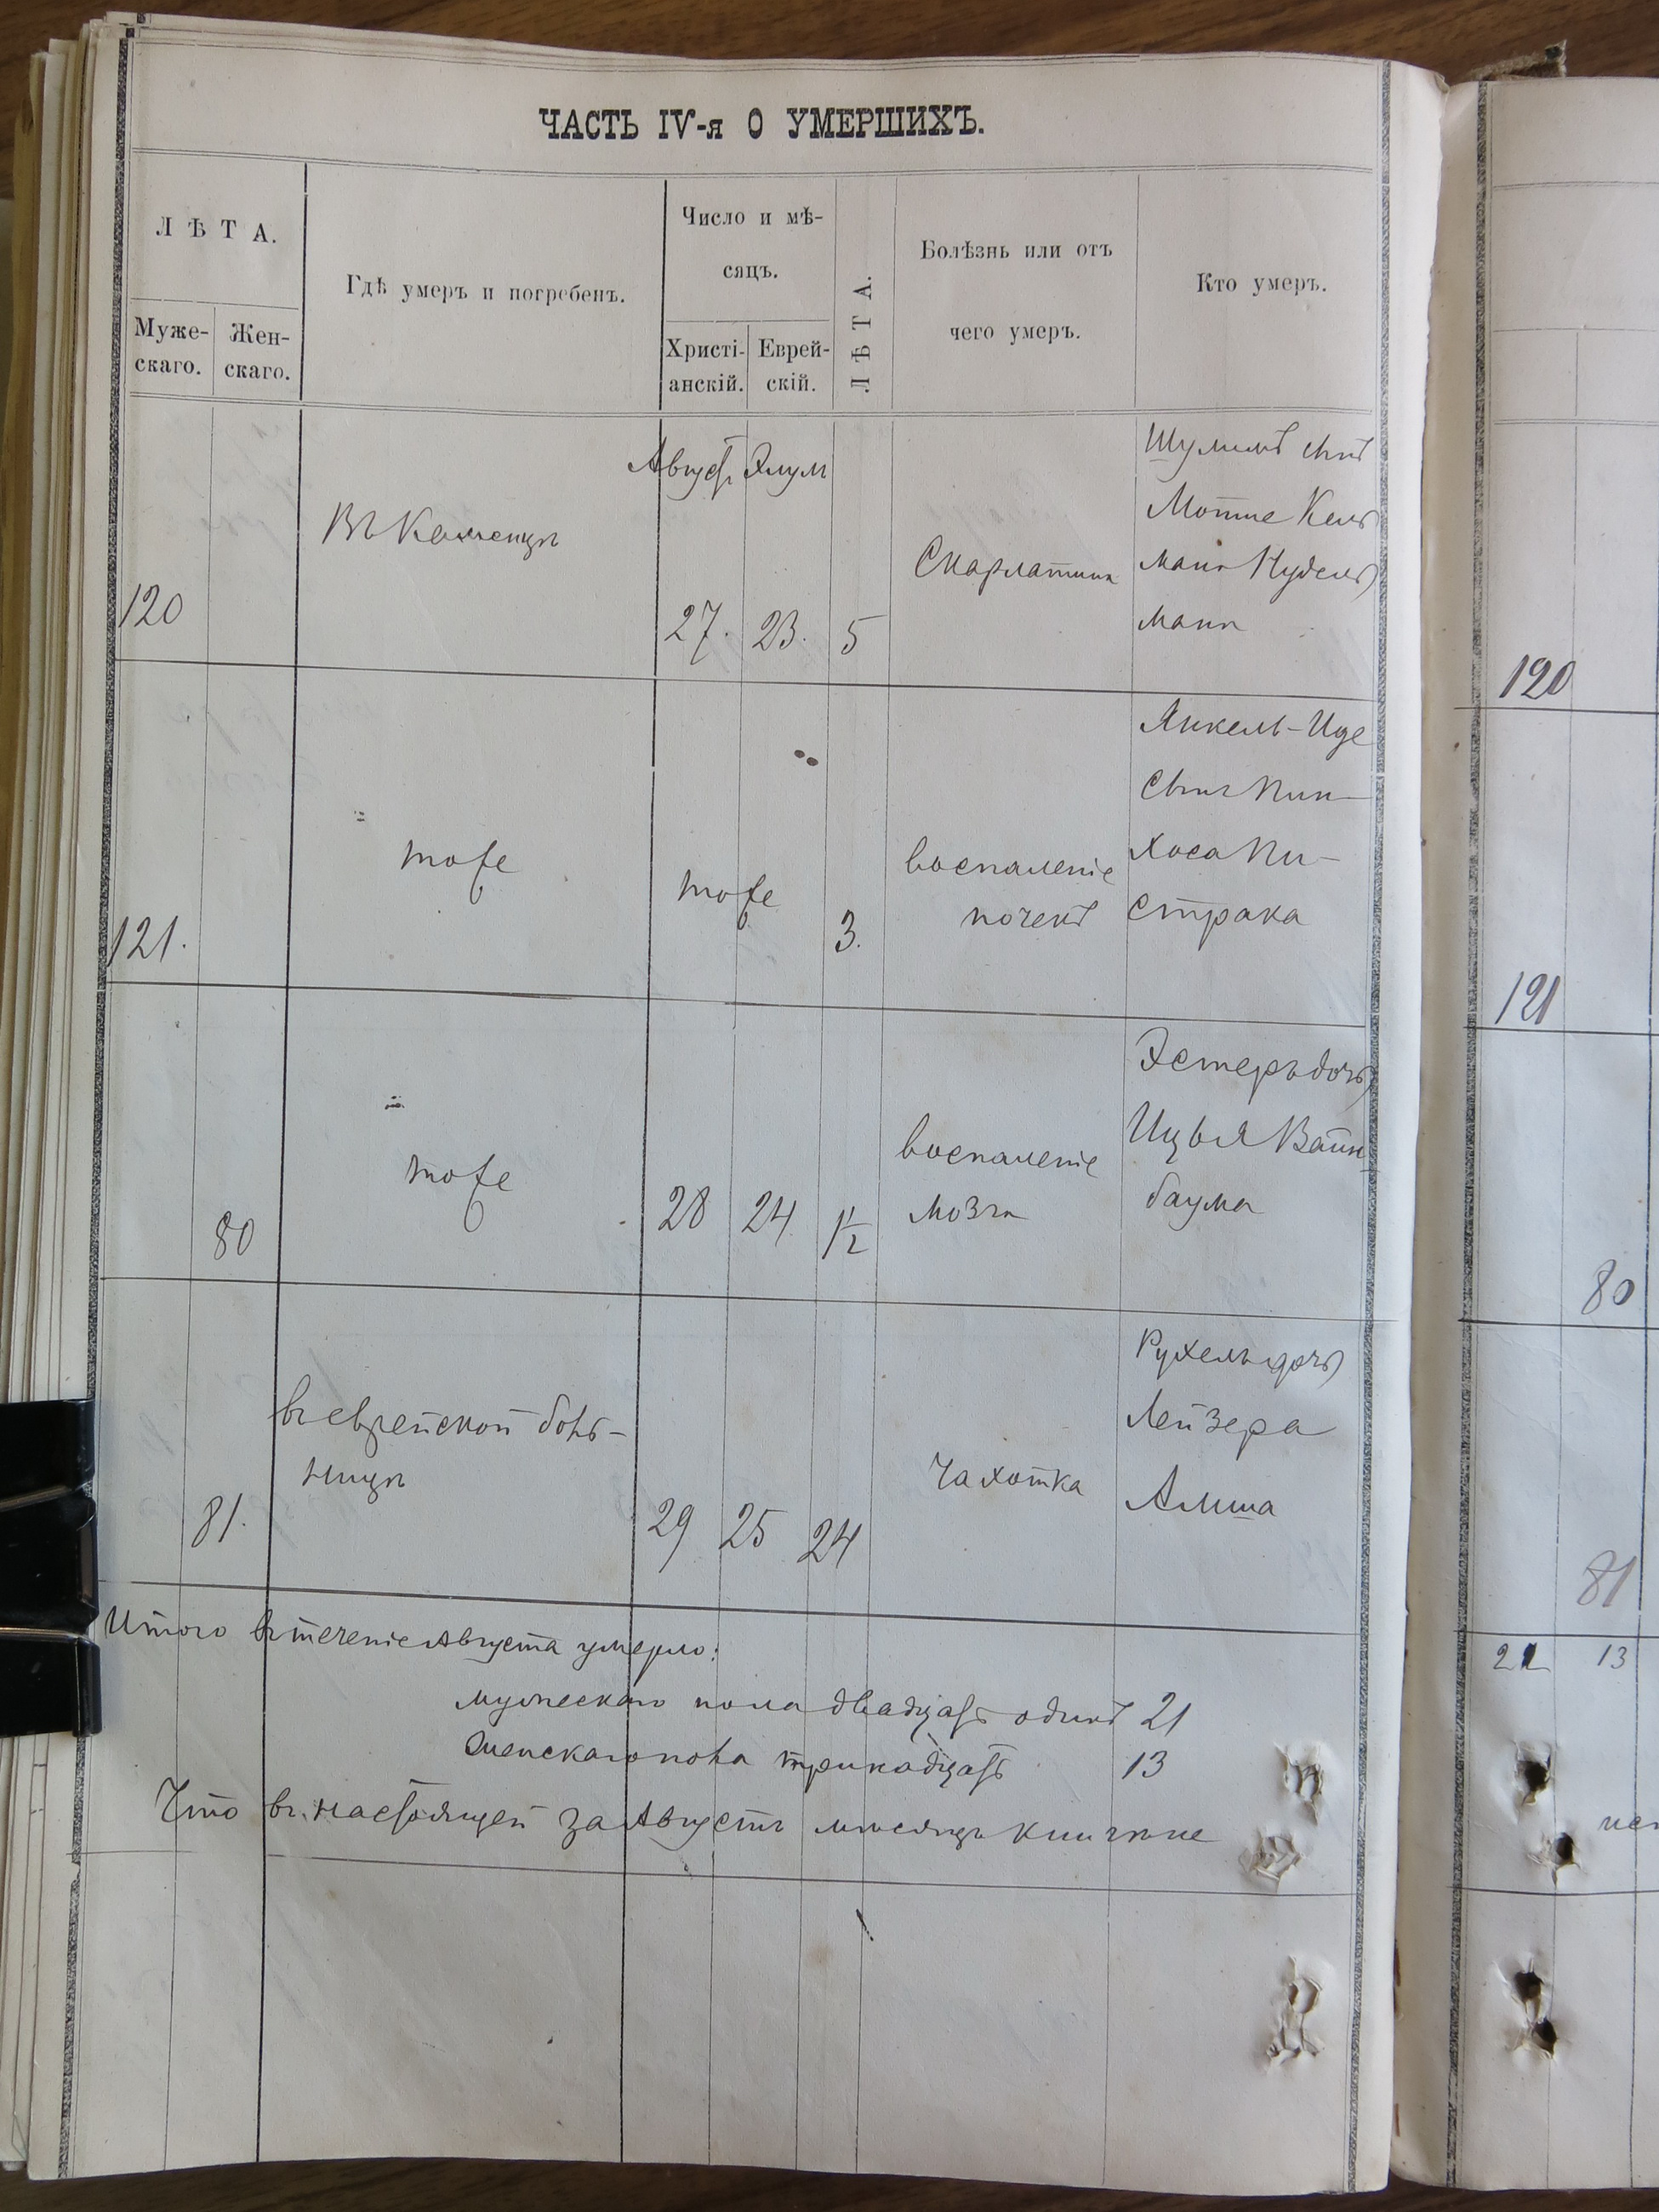 ЧАСТЬ IV-я О УМЕРШИХЪ.
ЛѢТА.
Муже-
скаго.
Жен-
скаго.
Гдѣ умеръ и погребенъ.
Число и мѣ-
сяцъ.
Христі-
анскій.
Еврей-
скій.
ЛѢТА.
Болѣзнь или отъ
чего умеръ.
Кто умеръ.
120
Въ Каменцѣ
Август Элул
27. 23. 5
Скарлатина
Шулимъ сынъ
Мотте Кель
мана Нудель
мана
121.
тоже
тоже
3.
воспаленіе
почекъ
Янкель-Иде
сынъ Пин-
хоса Пи-
страка
80
тоже
28 24 1/2
воспаленіе
мозга
Эстеръ дочь
Ицыя Вайн
баума
81.
въ еврейской боль-
ницѣ
29 25 24
Чахотка
Рухель дочь
Лейзера
Алиша
Итого въ теченіе Августа умерло:
мужескаго пола двадцать одинъ 21
женскаго пола тринадцать 13
Что въ настоящей за Августъ мѣсяцъ книгѣ не
120
121
80
81
21 13